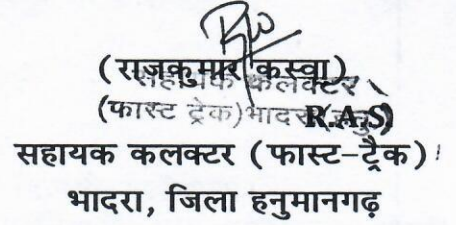 (राजकुमार कस्वा)
सहायक कलक्टर
(फास्ट ट्रेक)भादरा
R.A.S)
सहायक कलक्टर (फास्ट-ट्रैक)
भादरा, जिला हनुमानगढ़